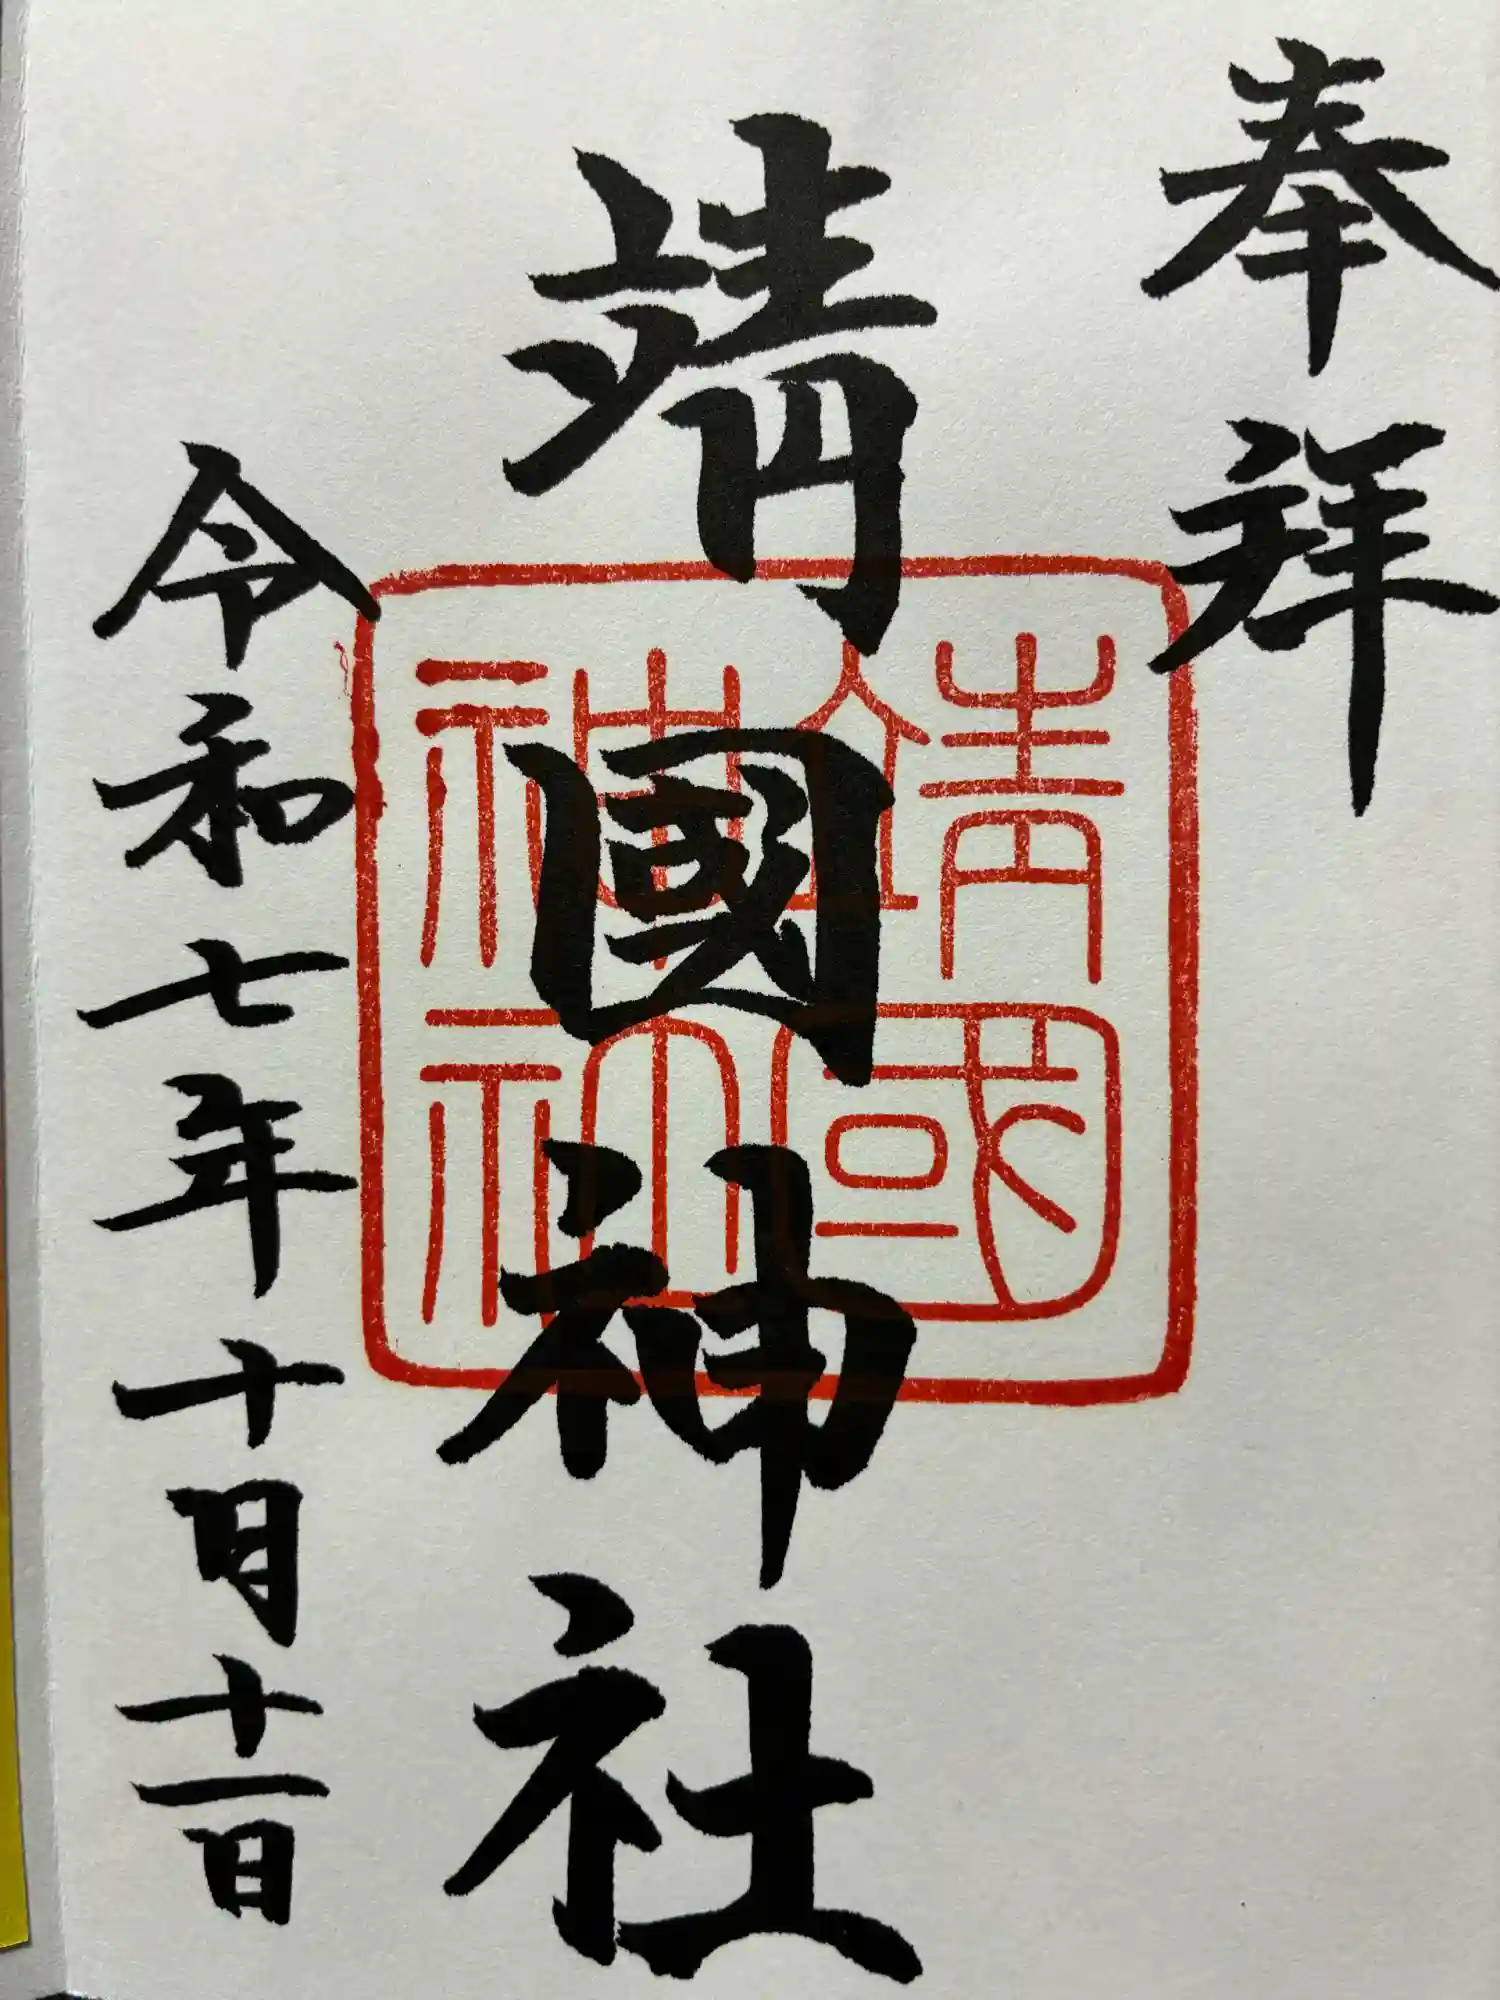 奉拜
靖國神社
靖國
神社
令和七年十月十一日